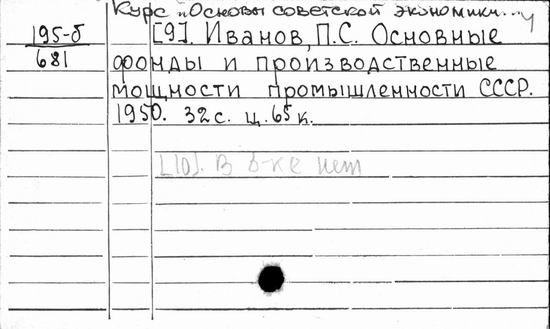 Курс „Основы советской экономики... 4
195-б
681
[9]. Иванов, П.С. Основные
фонды и производственные
мощности промышленности СССР.
1950. 32 с. ц. 65 к.
[10]. В б-ке нет